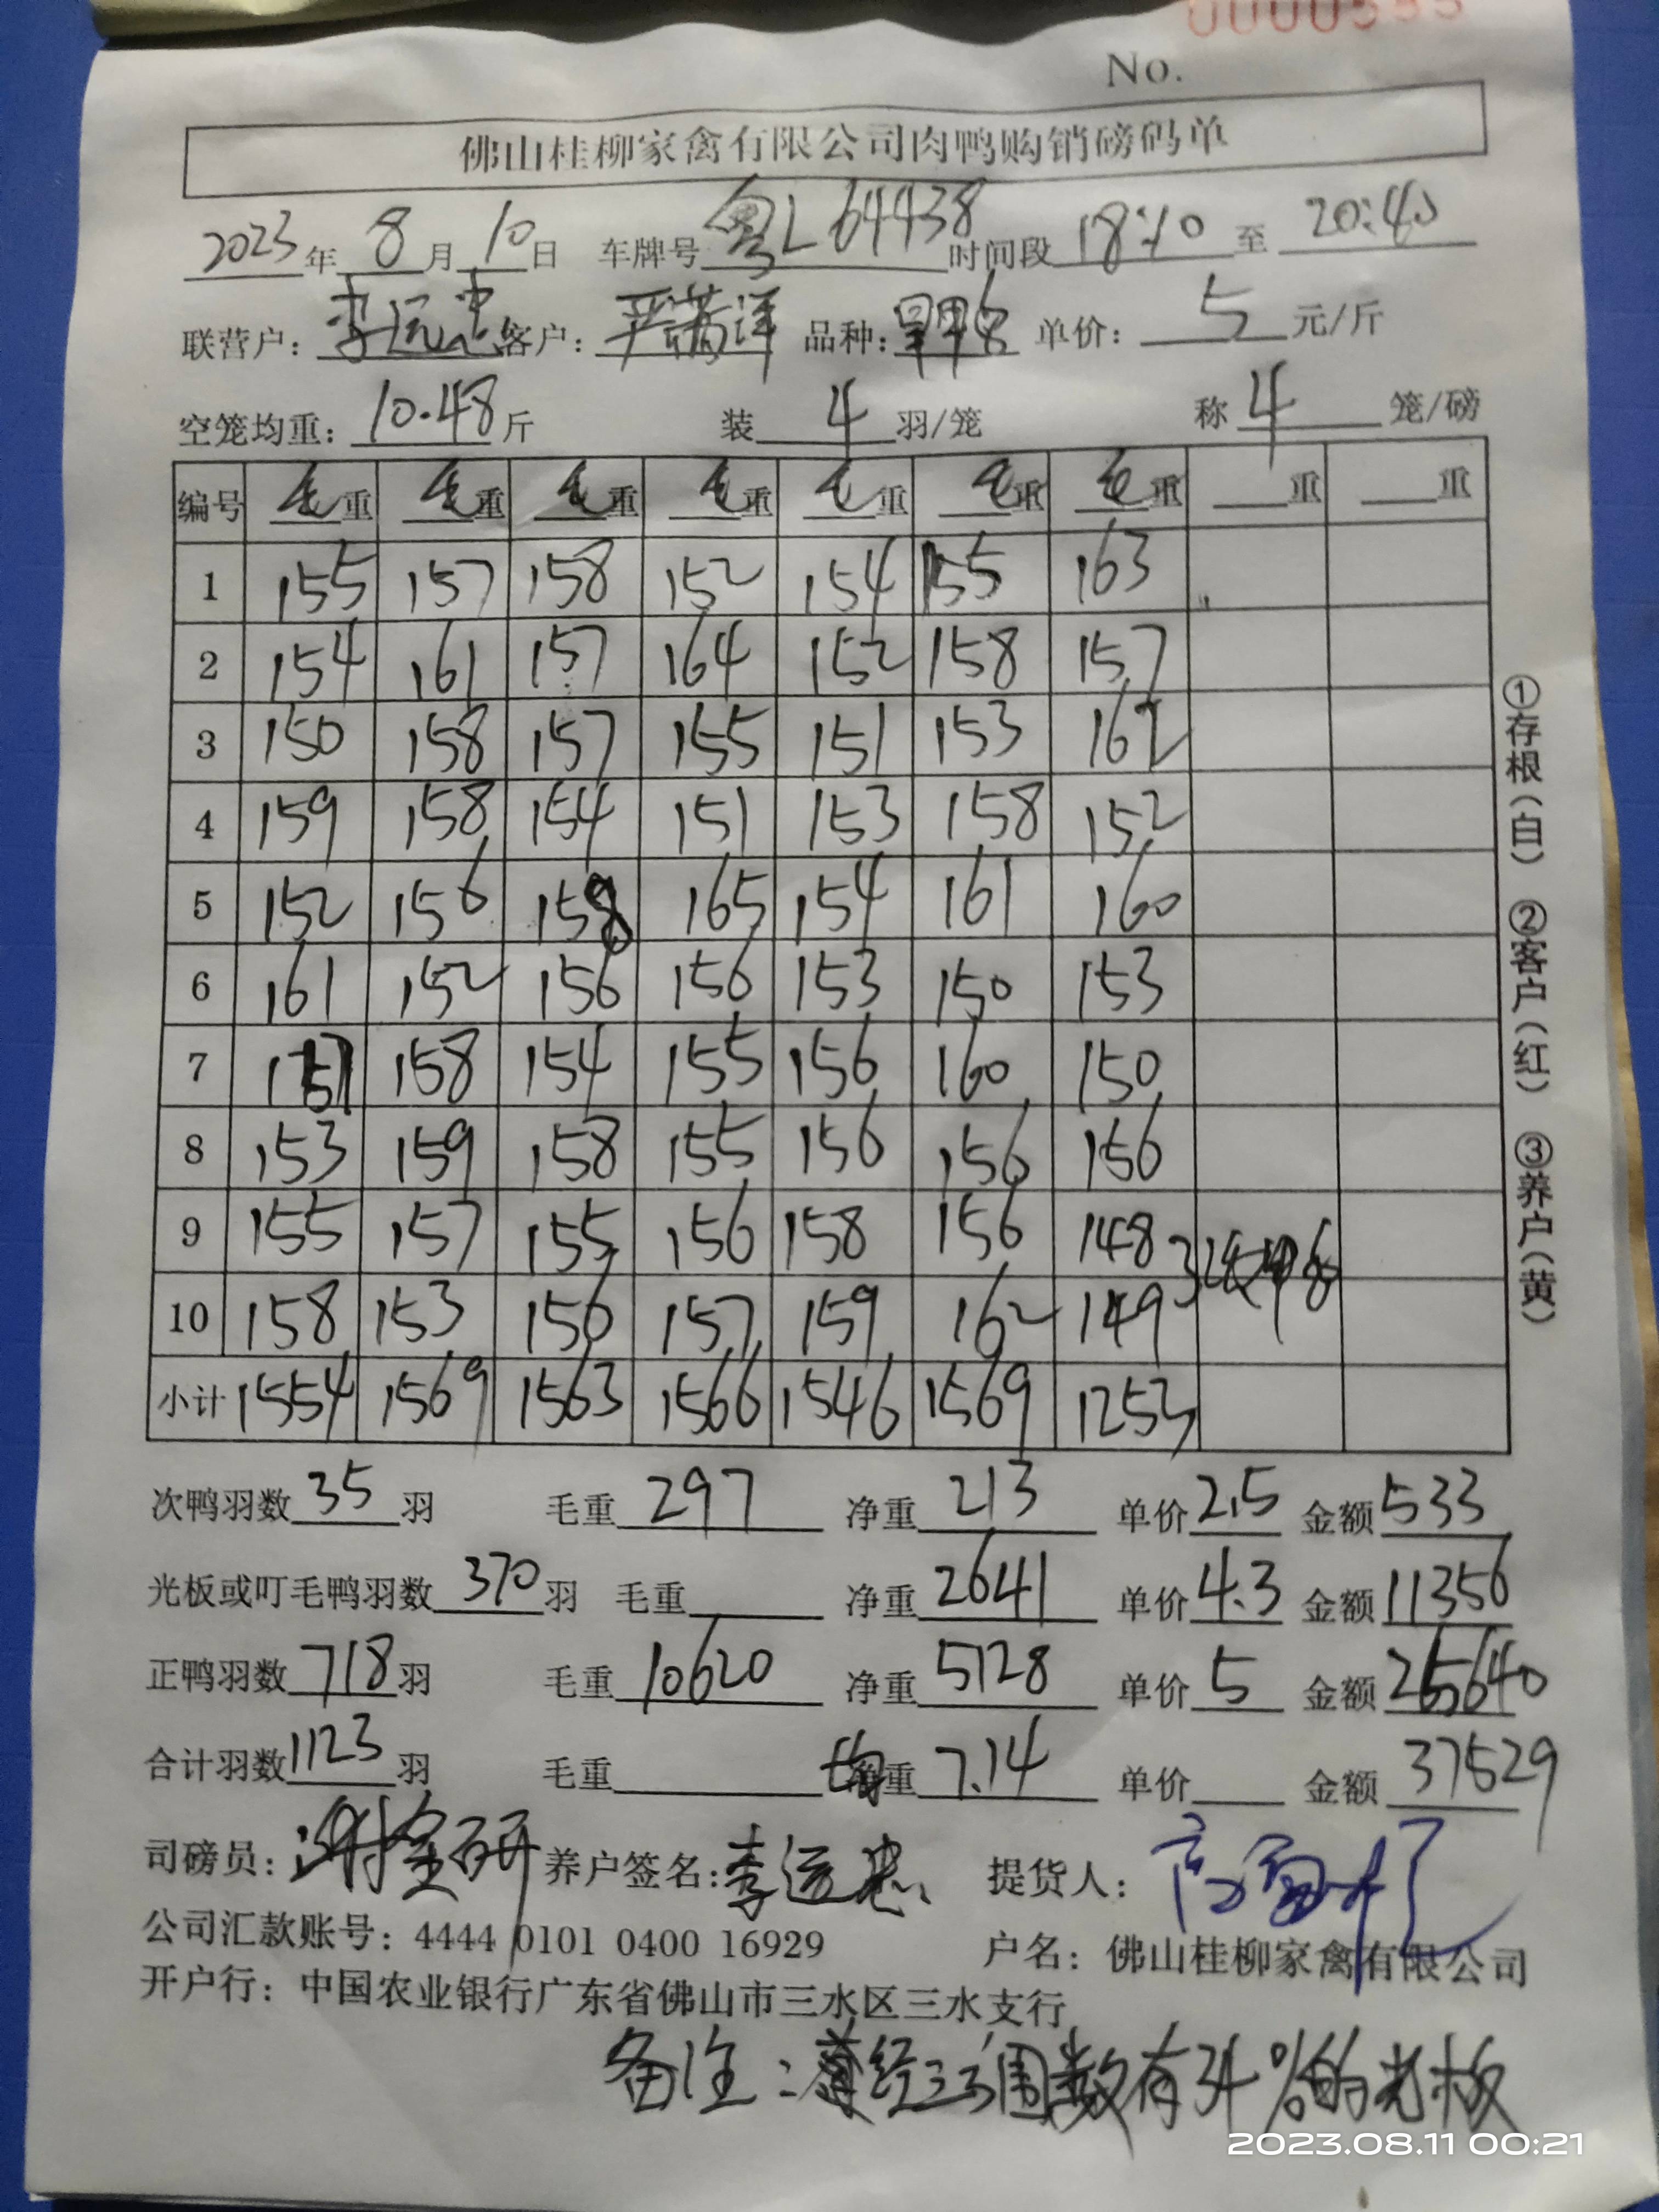 No.
佛山桂柳家禽有限公司肉鸭购销磅码单
2023年 8月 10日 车牌号 粤L 64438 时间段 18:10 至 20:40
联营户: 李远忠 客户: 严 洋 品种: 单价: 5 元/斤
空笼均重: 10.48斤 装 4 羽/笼 称 4 笼/磅
编号 毛重 毛重 毛重 毛重 毛重 毛重 毛重 重 重
1 155 157 158 152 154 155 163
2 154 161 157 164 152 158 157
3 150 158 157 155 151 153 162
4 159 158 154 151 153 158 152
5 152 156 158 165 154 161 160
6 161 152 156 156 153 150 153
7 157 158 154 155 156 160 150
8 153 159 158 155 156 156 156
9 155 157 155 156 158 156 148
10 158 153 156 157 159 162 149
小计 1554 1569 1563 1566 1546 1569 1253
①存根(白) ②客户(红) ③养户(黄)
次鸭羽数 35 羽 毛重 297 净重 213 单价 2.5 金额 533
光板或叮毛鸭羽数 370 羽 毛重 净重 2641 单价 4.3 金额 11356
正鸭羽数 718 羽 毛重 10620 净重 5128 单价 5 金额 25640
合计羽数 1123 羽 毛重 均重 7.14 单价 金额 37529
司磅员: 养户签名: 李远忠 提货人:
公司汇款账号: 4444 0101 0400 16929 户名: 佛山桂柳家禽有限公司
开户行: 中国农业银行广东省佛山市三水区三水支行
备注: 经 数有34%的光板
2023.08.11 00:21